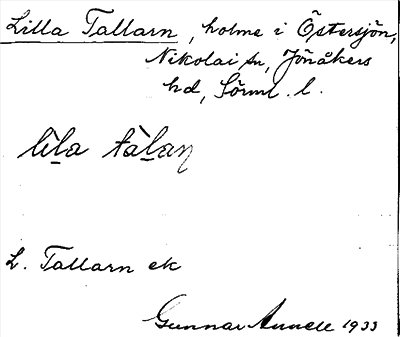 Lilla Tallarn, holme i Östersjön,
Nikolai sn, Jönåkers
hd, Sörml. l.
lìl̲a tàl̲aɳ
L. Tallarn ek
Gunnar Annell 1933